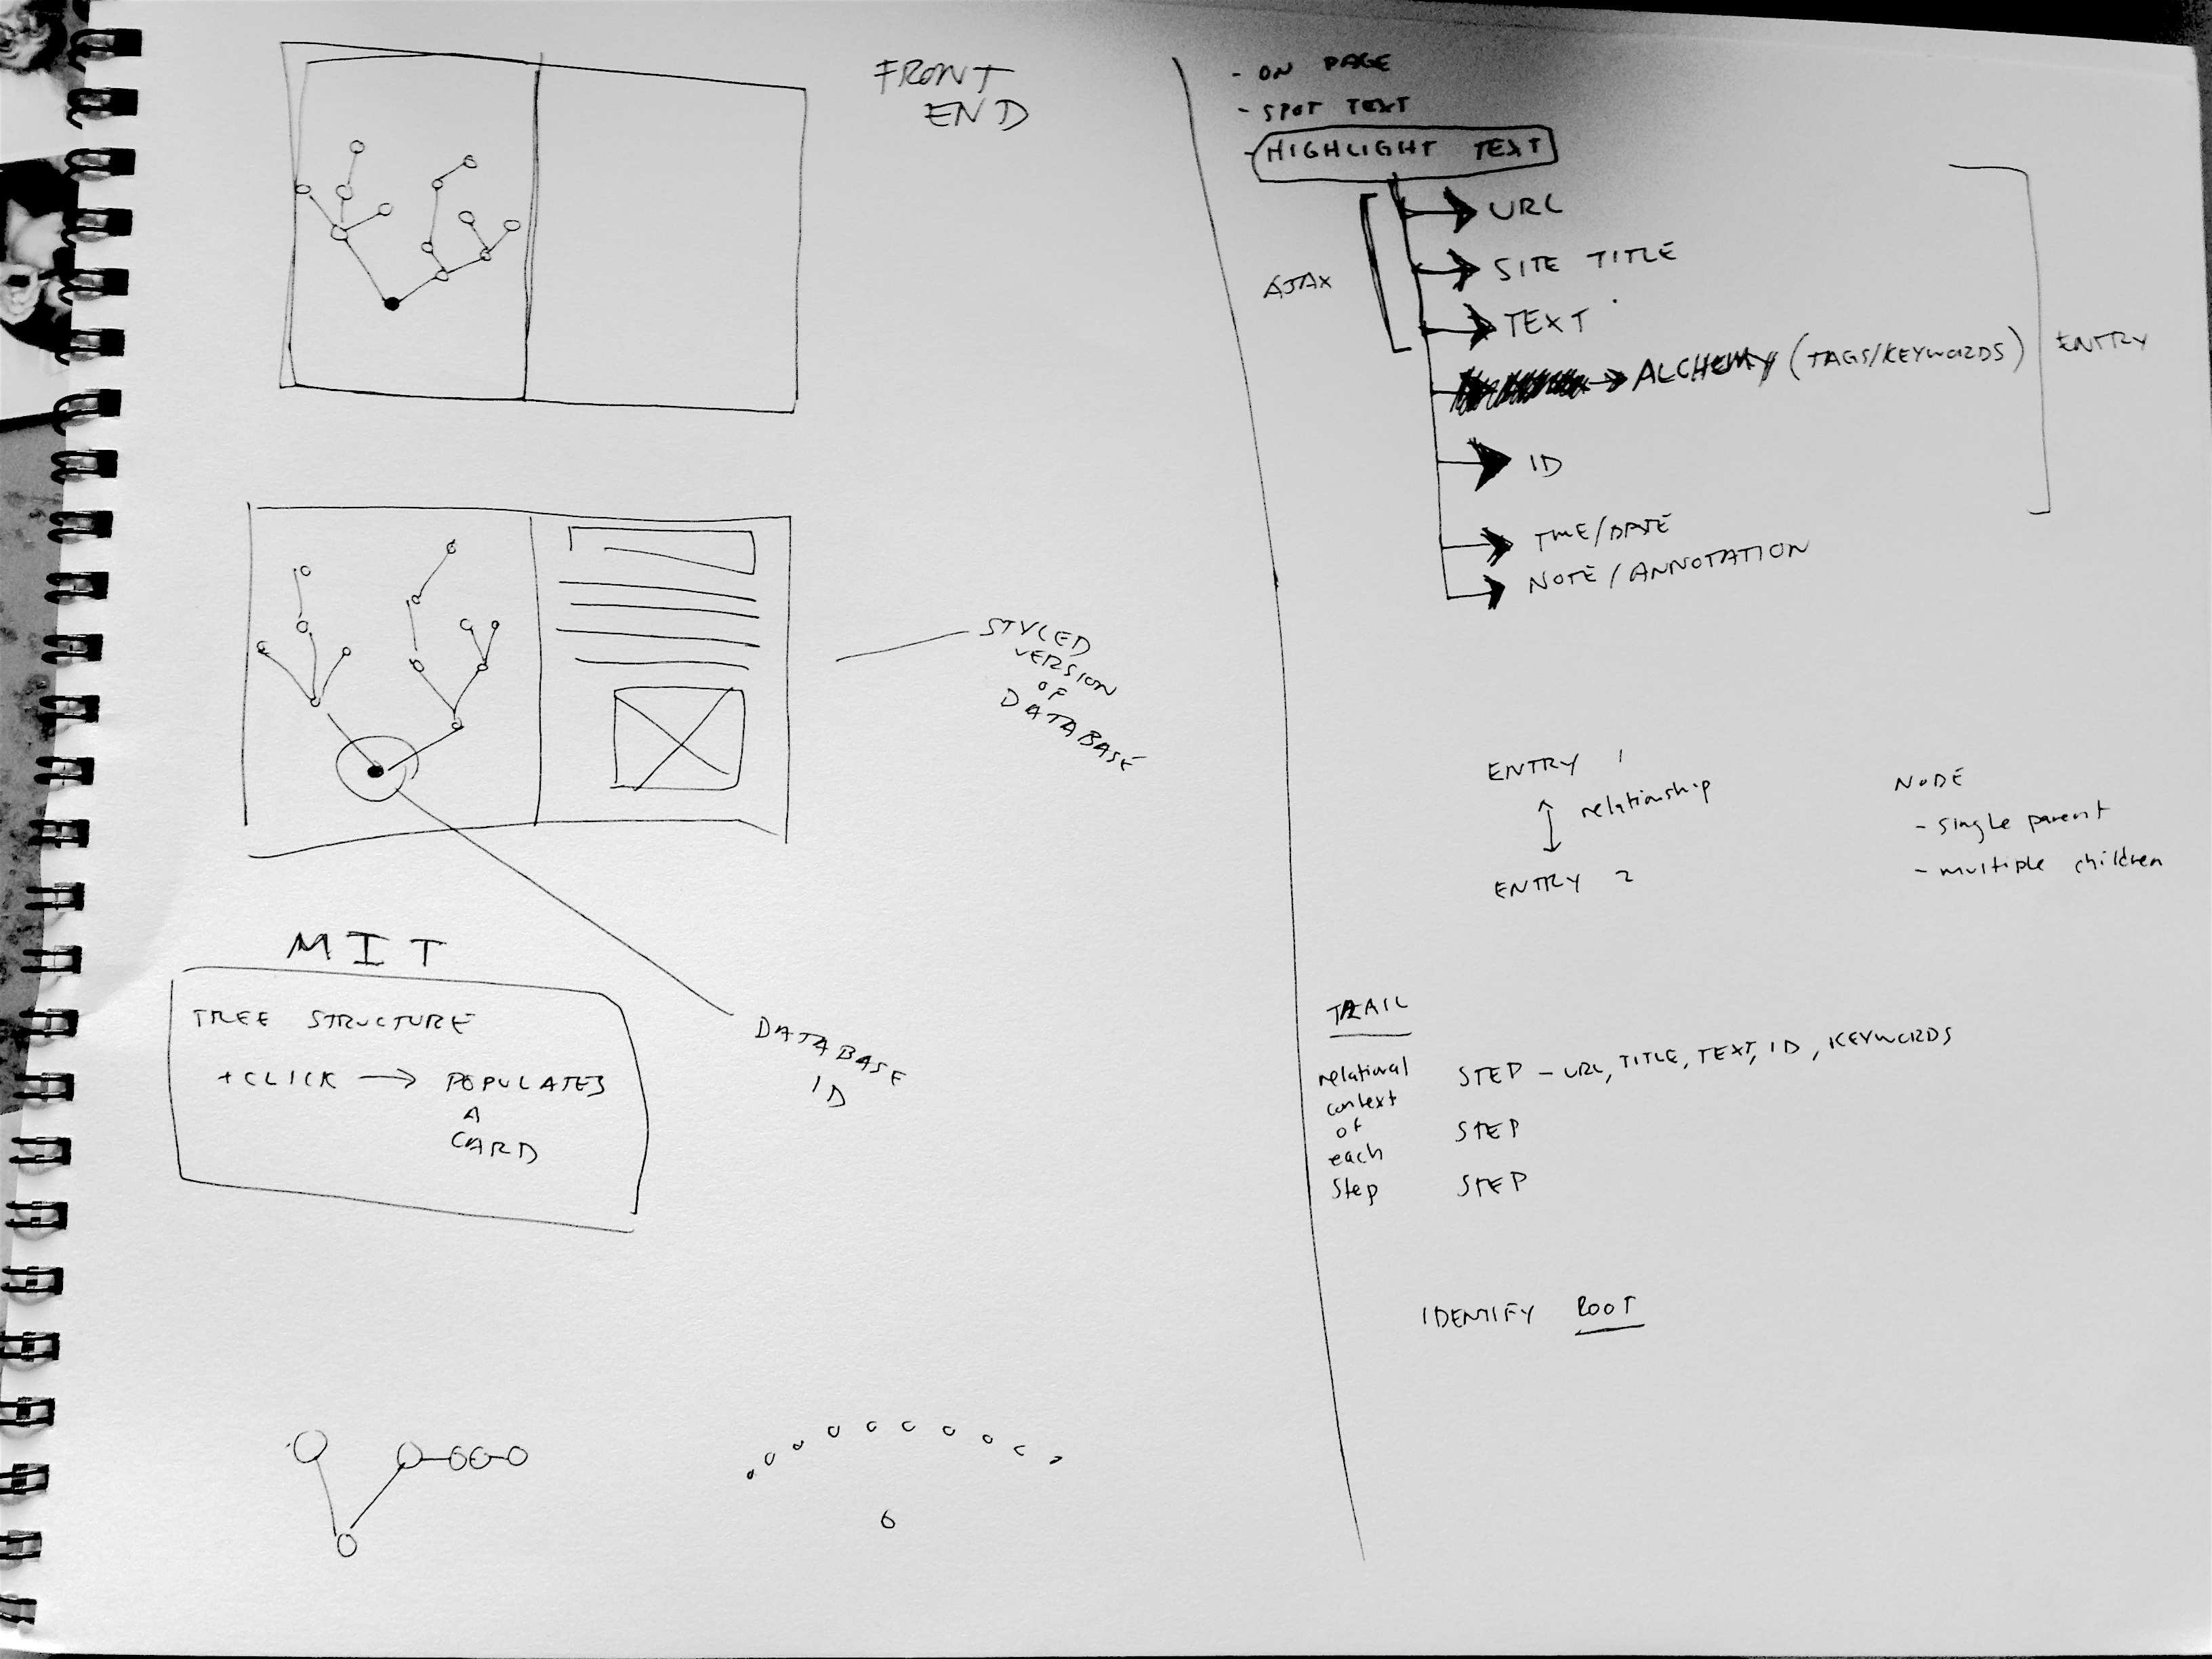 FRONT
END
STYLED
VERSION
OF
DATABASE
MIT
TREE STRUCTURE
+ CLICK → POPULATES
A
CARD
DATABASE
ID
- ON PAGE
- SPOT TEXT
- HIGHLIGHT TEXT
AJAX
→ URL
→ SITE TITLE
→ TEXT
→ ALCHEMY (TAGS/KEYWORDS)
→ ID
→ TIME/DATE
→ NOTE / ANNOTATION
ENTRY
ENTRY 1
relationship
ENTRY 2
NODE
- single parent
- multiple children
TRAIL
relational
context
of
each
step
STEP - URL, TITLE, TEXT, ID, KEYWORDS
STEP
STEP
IDENTIFY ROOT